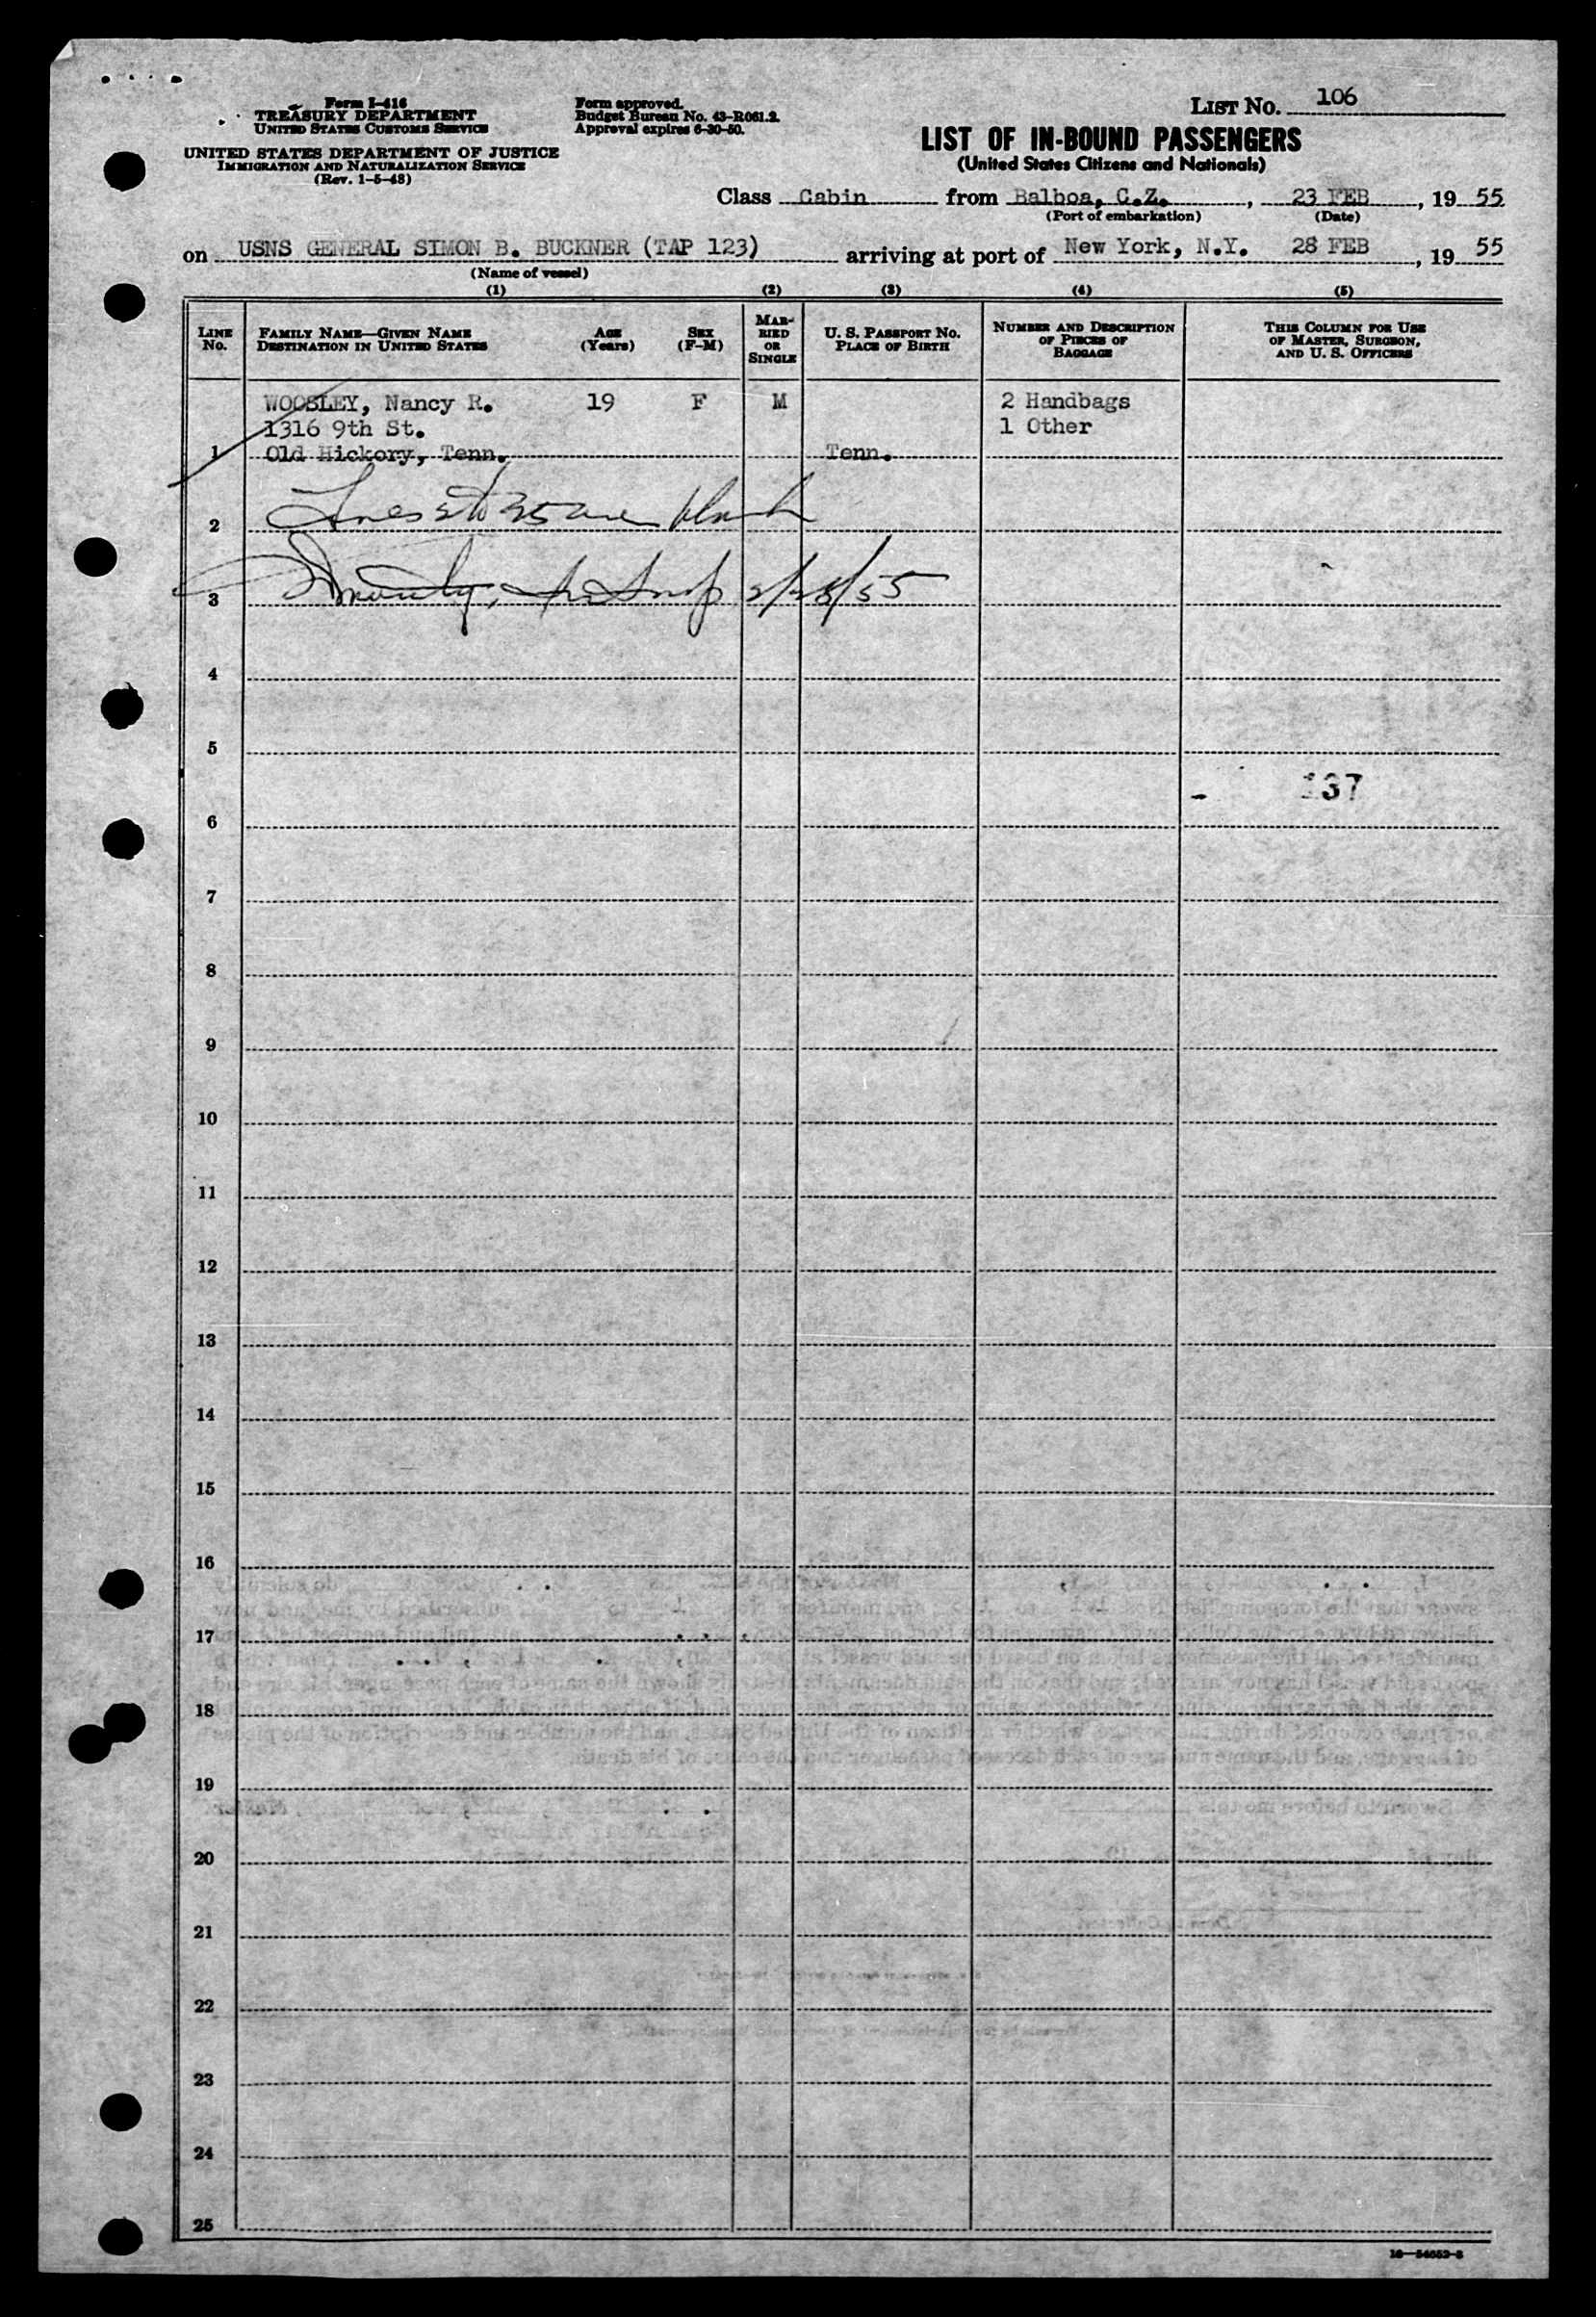 Form I-416
TREASURY DEPARTMENT
UNITED STATES CUSTOMS SERVICE
UNITED STATES DEPARTMENT OF JUSTICE
IMMIGRATION AND NATURALIZATION SERVICE
(Rev. 1-5-48)
Form approved.
Budget Bureau No. 43-R061.2.
Approval expires 6-30-50.
LIST NO. 106
LIST OF IN-BOUND PASSENGERS
(United States Citizens and Nationals)
Class Cabin from Balboa, C.Z., 23 FEB, 19 55
(Port of embarkation) (Date)
on USNS GENERAL SIMON B. BUCKNER (TAP 123) arriving at port of New York, N.Y. 28 FEB, 19 55
(Name of vessel)
(1) (2) (3) (4) (5)
LINE NO.
FAMILY NAME—GIVEN NAME
DESTINATION IN UNITED STATES
AGE (Years)
SEX (F-M)
MARRIED OR SINGLE
U. S. PASSPORT NO.
PLACE OF BIRTH
NUMBER AND DESCRIPTION OF PIECES OF BAGGAGE
THIS COLUMN FOR USE OF MASTER, SURGEON, AND U. S. OFFICERS
WOOSLEY, Nancy R. 19 F M 2 Handbags
1316 9th St. 1 Other
1 Old Hickory, Tenn. Tenn.
2 Lines 2 to 25 are blank
3 2/28/55
4
5
137
6
7
8
9
10
11
12
13
14
15
16
17
18
19
20
21
22
23
24
25
16—54652-3